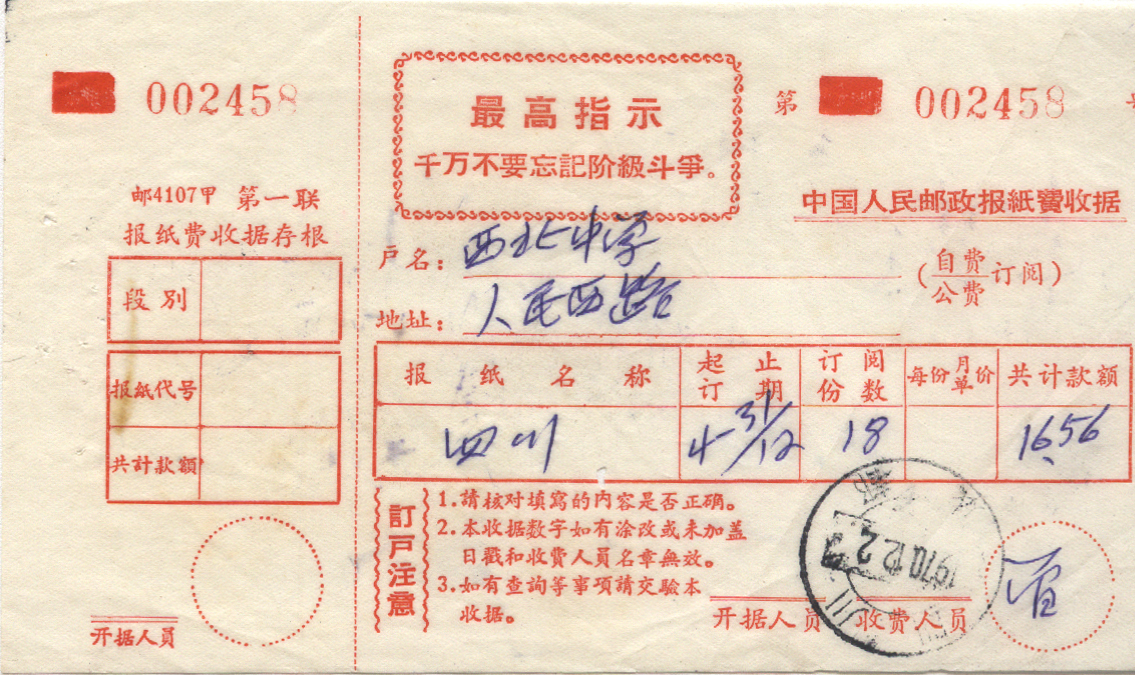 002458
邮4107甲 第一联
报纸费收据存根
段别
报紙代号
共计款額
开据人员
最高指示
千万不要忘記阶級斗爭。
第 002458
中国人民邮政报紙費收据
户名：西北中学
(自费 公费 订阅)
地址：人民西路
报纸名称 起止订期 订阅份数 每份月单价 共计款额
四川 4 31/12 18 16.56
訂戶注意
1.請核对填寫的内容是否正确。
2.本收据数字如有涂改或未加盖
日戳和收费人員名章無效。
3.如有查詢等事項請交驗本
收据。
开据人员 收费人员
1970.12.2